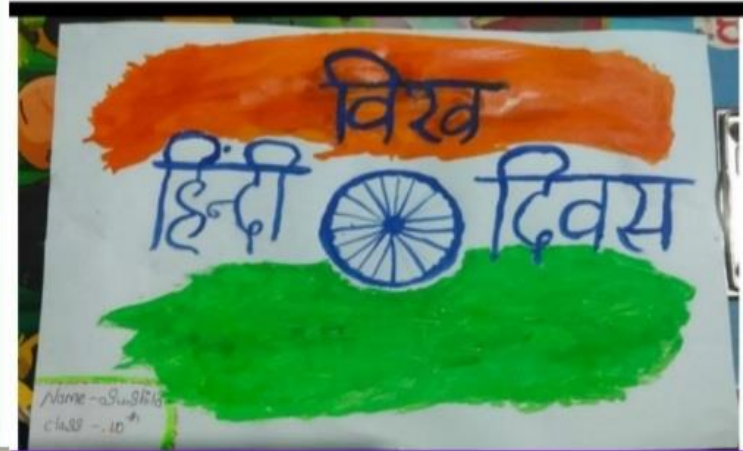 विश्व
हिंन्दी दिवस
Name -
class - 10th